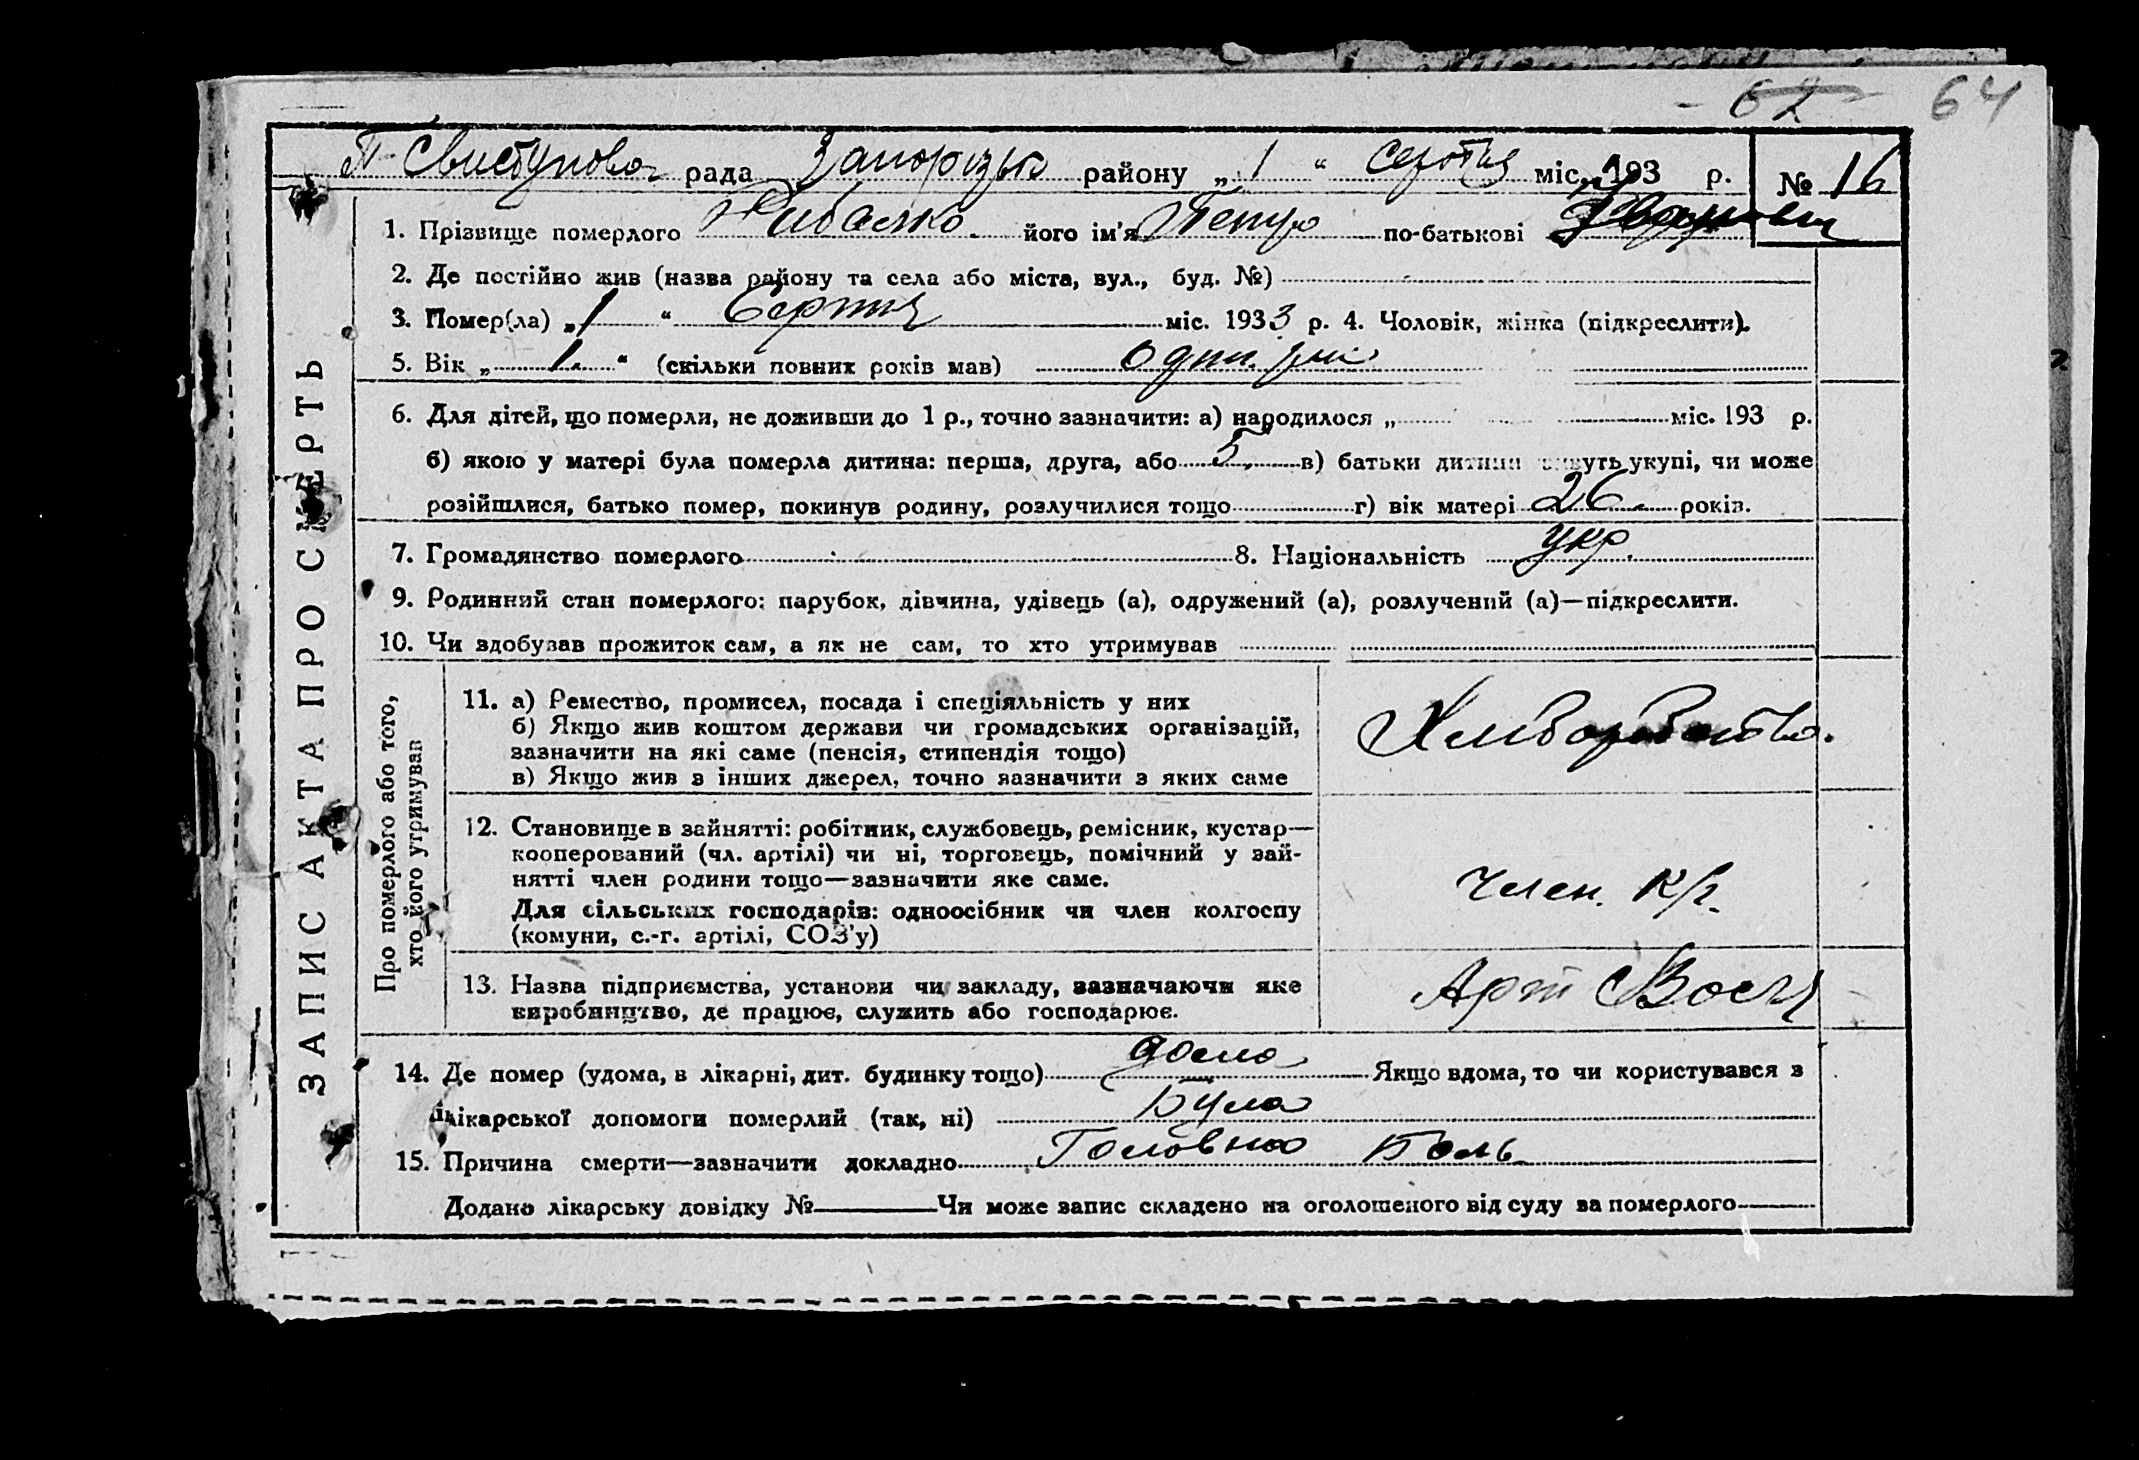 62 64
Свистунова рада Запорізьк району „ 1 “ серпня міс. 193 р. № 16
1. Прізвище померлого Рибалко його ім'я Петро по-батькові
2. Де постійно жив (назва району та села або міста, вул., буд. №)
3. Помер(ла) „ 1 “ Серпня міс. 1933 р. 4. Чоловік, жінка (підкреслити).
5. Вік „ 1. “ (скільки повних років мав) один рік
6. Для дітей, що померли, не доживши до 1 р., точно зазначити: а) народилося „ міс. 193 р.
б) якою у матері була померла дитина: перша, друга, або 5, в) батьки дитини живуть укупі, чи може
розійшлися, батько помер, покинув родину, розлучилися тощо г) вік матері 26 років.
7. Громадянство померлого 8. Національність укр.
9. Родинний стан померлого: парубок, дівчина, удівець (а), одружений (а), розлучений (а)—підкреслити.
10. Чи здобував прожиток сам, а як не сам, то хто утримував
ЗАПИС АКТА ПРО СМЕРТЬ
Про померлого або того,
хто його утримував
11. а) Ремество, промисел, посада і спеціяльність у них
б) Якщо жив коштом держави чи громадських організацій,
зазначити на які саме (пенсія, стипендія тощо)
в) Якщо жив з інших джерел, точно зазначити з яких саме
12. Становище в зайнятті: робітник, службовець, ремісник, кустар—
кооперований (чл. артілі) чи ні, торговець, помічний у зай-
нятті член родини тощо—зазначити яке саме.
Для сільських господарів: одноосібник чи член колгоспу
(комуни, с.-г. артілі, СОЗ'у)
член. к/г.
13. Назва підприємства, установи чи закладу, зазначаючи яке
виробництво, де працює, служить або господарює.
Арт
14. Де помер (удома, в лікарні, дит. будинку тощо) дома Якщо вдома, то чи користувався з
лікарської допомоги померлий (так, ні) Була
15. Причина смерти—зазначити докладно Головна Боль
Додано лікарську довідку № Чи може запис складено на оголошеного від суду за померлого